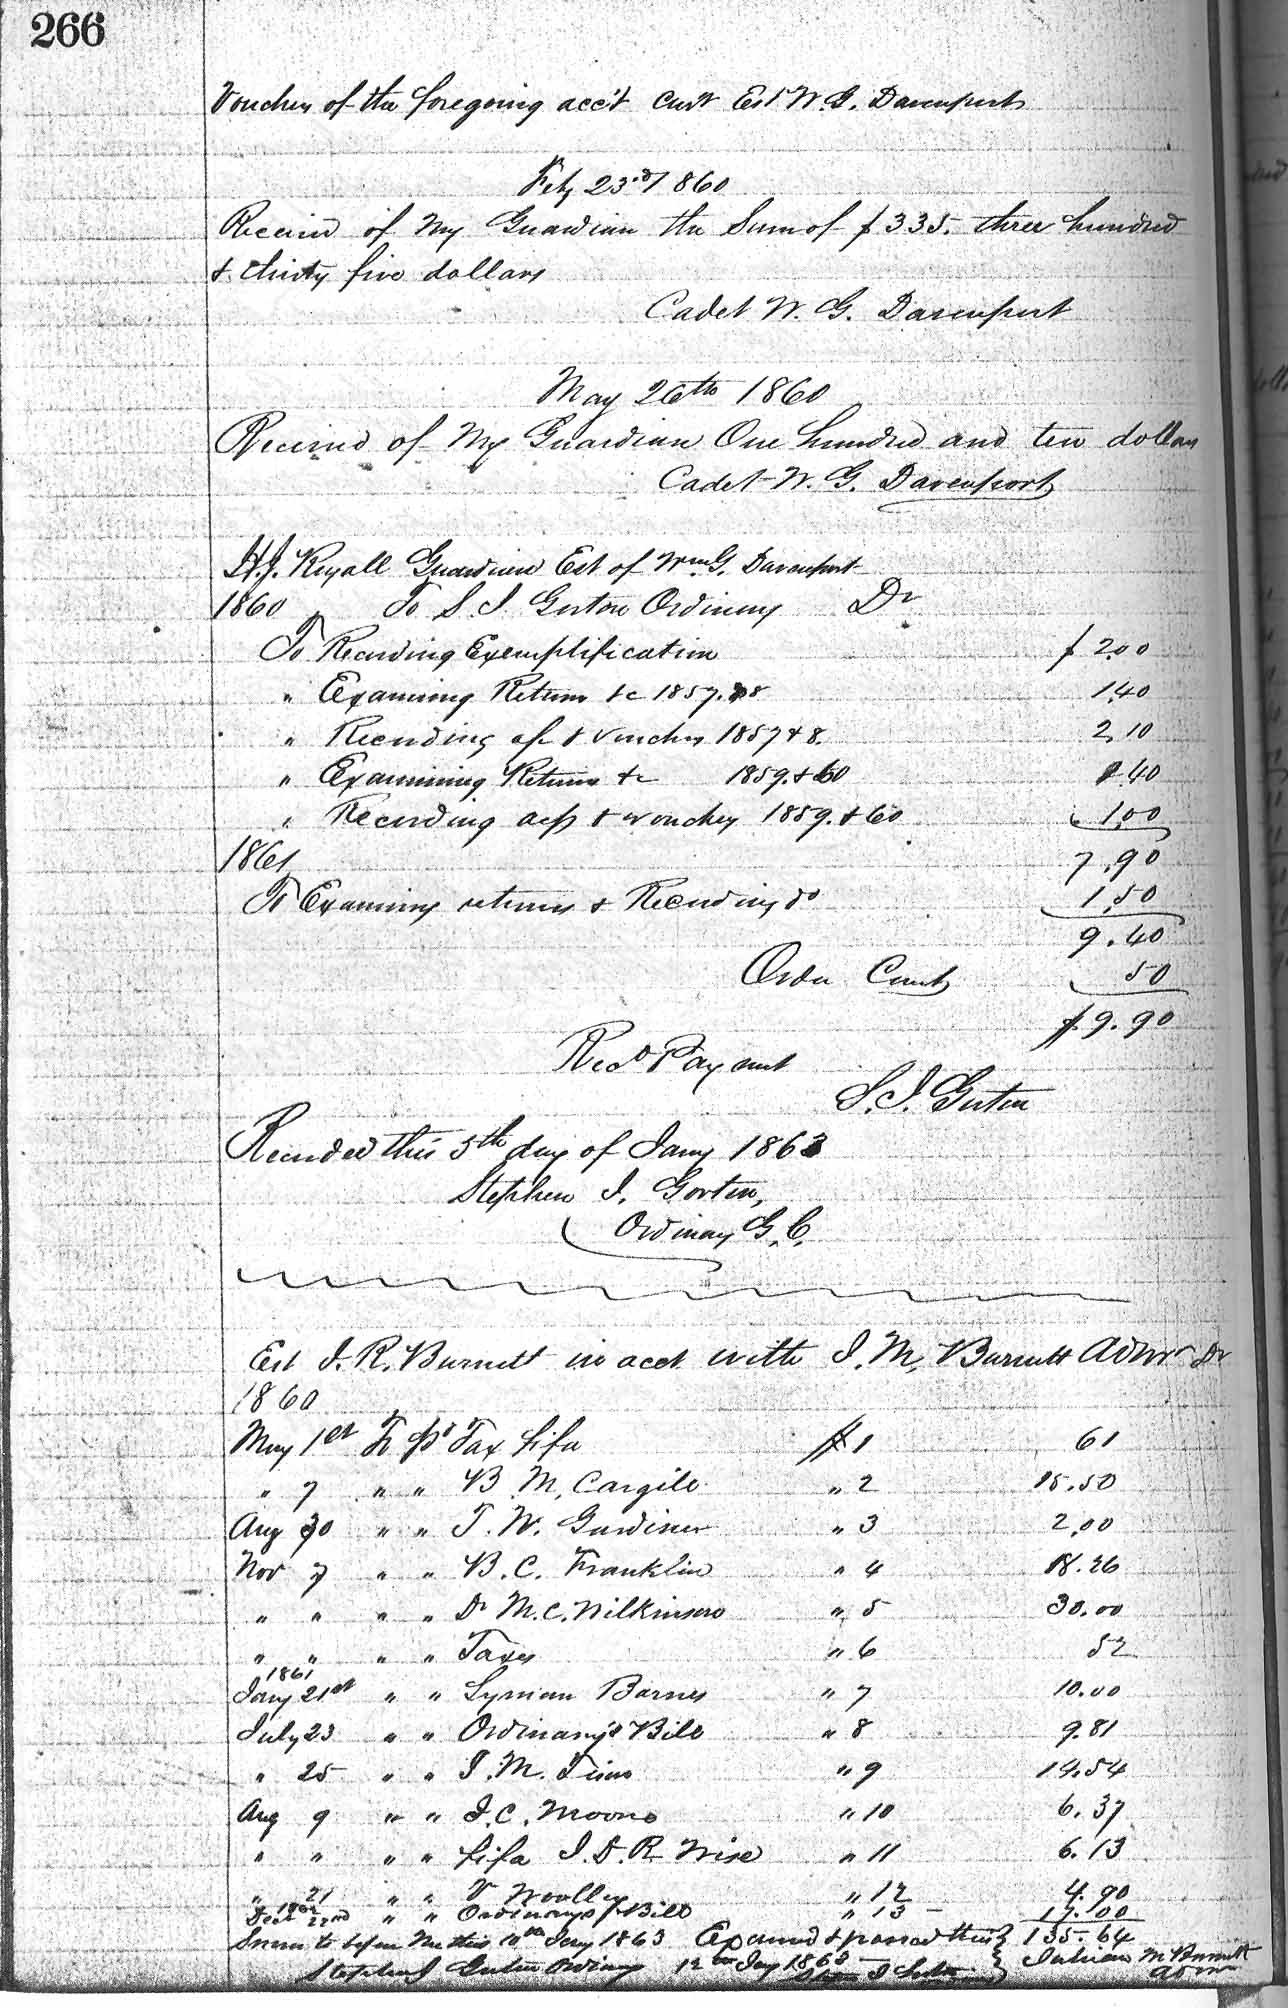 266
Vouchers of the foregoing acc't Curt Est W. G. Davenport
Feby 23rd 1860
Received of My Guardian the Sum of $335. three hundred
& thirty five dollars
Cadet W. G. Davenport
May 26th 1860
Received of My Guardian One hundred and ten dollars
Cadet W. G. Davenport
Guardian Est of Wm G. Davenport
1860 To S. J. Gorton Ordinary Dr
To Recording Exemplification $ 2.00
" Examining Return &c 1857.58 1.40
" Recording a/c & vouchers 1857 & 8. 2.10
" Examining Return &c 1859. & 60 1.40
" Recording accts & vouchers 1859. & 60 1.00
1861 7.90
To Examining returns & Recording do 1.50
9.40
Order Court 50
$9.90
Recd Payment
S. J. Gorton
Recorded this 5th day of Jany 1863
Stephen J. Gorton,
Ordinary G. C.
Est J. R. Burnett in acct with J. M. Burnett Admr Dr
1860
May 1st To pd Tax fifa #1 61
" 7 " " B. M. Cargile " 2 15.50
Aug 30 " " T. W. Gardiner " 3 2.00
Nov 7 " " B. C. Franklin " 4 18.26
" " " " Dr M. C. Wilkinson " 5 30.00
" " " " Taxes " 6 52
1861
Jany 21st " " Lyman Barnes " 7 10.00
July 23 " " Ordinary's Bill " 8 9.81
" 25 " " J. M. " 9 14.54
Aug 9 " " J. C. Moore " 10 6.37
" " " " fifa J. D. R. Wise " 11 6.13
" 21 " " V Woolley " 12 4.90
1862
Decr 22nd " " Ordinarys Bill " 13 17.00
Sworn to before Me this 10th Jany 1863 Examined & passed this 135.64
Stephen J Gorton Ordinary 12th Jany 1863 Julian M Burnett
Stephen J Gorton Admr